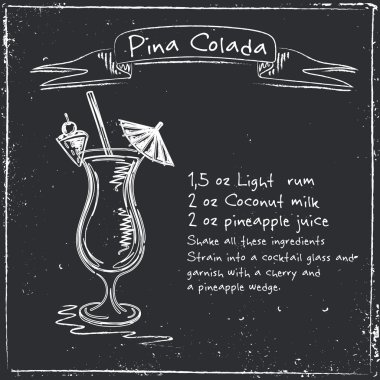 Pina Colada
1,5 oz Light rum
2 oz Coconut milk
2 oz pineapple juice
Shake all these ingredients
Strain into a cocktail glass and
garnish with a cherry and
a pineapple wedge.